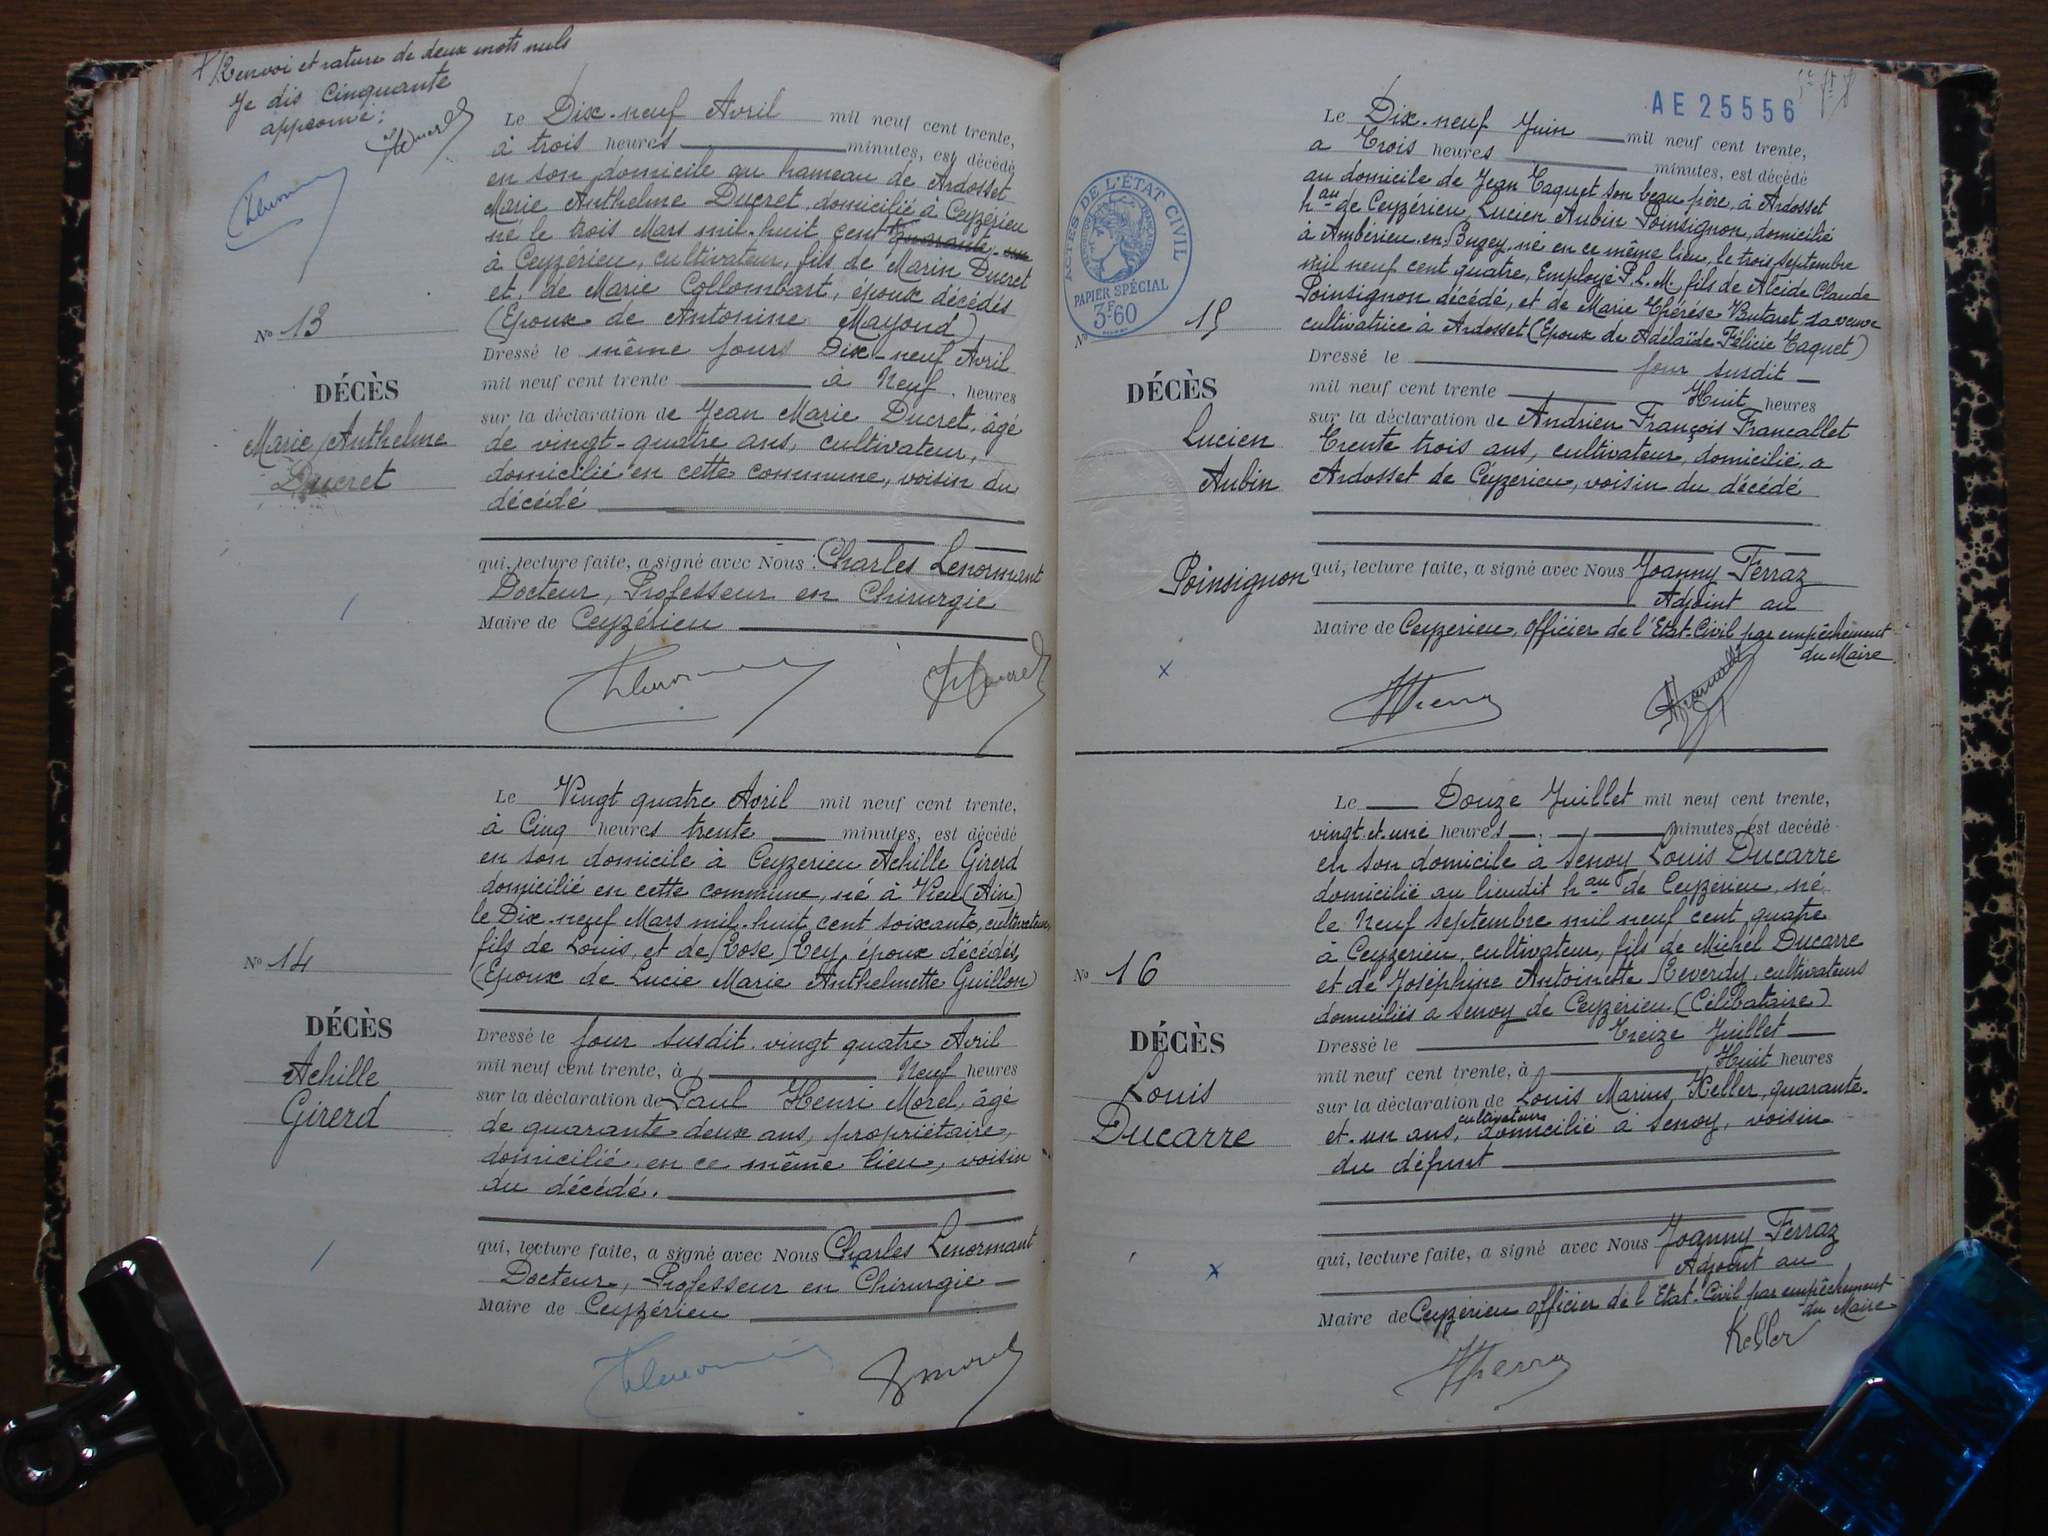 Renvoi et rature de deux mots nuls
Je dis Cinquante
approuvé :
Le Dix-neuf Avril mil neuf cent trente,
à trois heures minutes, est décédé
en son domicile au hameau de Ardosset
Marie Anthelme Ducret, domicilié à Ceyzérieu
né le trois Mars mil-huit cent quarante-six
à Ceyzérieu, cultivateur, fils de Marin Ducret
et de Marie Collombart, époux décédés
(Epoux de Antonine Mayoud)
Nº 13
Dressé le même jours Dix-neuf Avril
mil neuf cent trente à Neuf, heures
DÉCÈS
Marie Anthelme
Ducret
sur la déclaration de Jean Marie Ducret, âgé
de vingt-quatre ans, cultivateur,
domicilié en cette commune, voisin du
décédé
qui, lecture faite, a signé avec Nous : Charles Lenormant
Docteur, Professeur en Chirurgie
Maire de Ceyzérieu
Le Vingt quatre Avril mil neuf cent trente,
à Cinq heures trente minutes, est décédé
en son domicile à Ceyzerieu Achille Girerd
domicilié en cette commune, né à Vieu (Ain)
le Dix-neuf Mars mil-huit cent soixante, cultivateur,
fils de Louis, et de Rose Rey, époux décédés,
Nº 14
(Epoux de Lucie Marie Anthelmette Guillon)
DÉCÈS
Achille
Girerd
Dressé le jour susdit vingt quatre Avril
mil neuf cent trente, à Neuf heures
sur la déclaration de Paul Henri Morel, âgé
de quarante deux ans, propriétaire,
domicilié, en ce même lieu, voisin
du décédé.
qui, lecture faite, a signé avec Nous Charles Lenormant
Docteur, Professeur en Chirurgie
Maire de Ceyzérieu
AE 25556
ACTES DE L'ÉTAT CIVIL
PAPIER SPÉCIAL
3F60
Le Dix-neuf Juin mil neuf cent trente,
a Trois heures minutes, est décédé
au domicile de Jean Taquet son beau père, à Ardosset
hau de Ceyzérieu, Lucien Aubin Poinsignon, domicilié
à Ambérieu-en-Bugey, né en ce même lieu, le trois septembre
mil neuf cent quatre, Employé P.L.M. fils de Alcide Claude
Poinsignon décédé, et de Marie Thérèse Butaret, sa veuve
cultivatrice à Ardosset (Epoux de Adélaïde Félicie Taquet)
Nº 15
Dressé le jour susdit
mil neuf cent trente Huit heures
DÉCÈS
Lucien
Aubin
Poinsignon
sur la déclaration de Andrien François Francallet
Trente trois ans, cultivateur, domicilié, a
Ardosset de Ceyzerieu, voisin du décédé
qui, lecture faite, a signé avec Nous Joanny Ferraz
Adjoint au
Maire de Ceyzerieu, Officier de l'Etat-Civil par empêchement
du Maire
Le Douze Juillet mil neuf cent trente,
vingt et une heures minutes, est decédé
en son domicile à Senoy Louis Ducarre
domicilié au lieudit hau de Ceyzérieu, né
le Neuf septembre mil neuf cent quatre
à Ceyzerieu, cultivateur, fils de Michel Ducarre
Nº 16
et de Joséphine Antoinette Reverdy, cultivateurs
domiciliés a Senoy de Ceyzérieu (Célibataire)
DÉCÈS
Louis
Ducarre
Dressé le Treize Juillet
mil neuf cent trente, à Huit heures
sur la déclaration de Louis Marius Keller, quarante-
et-un ans, cultivateur domicilié à Senoy, voisin
du défunt
qui, lecture faite, a signé avec Nous Joanny Ferraz
Adjoint au
Maire de Ceyzérieu Officier de l'Etat-Civil par empêchement
du Maire
Keller